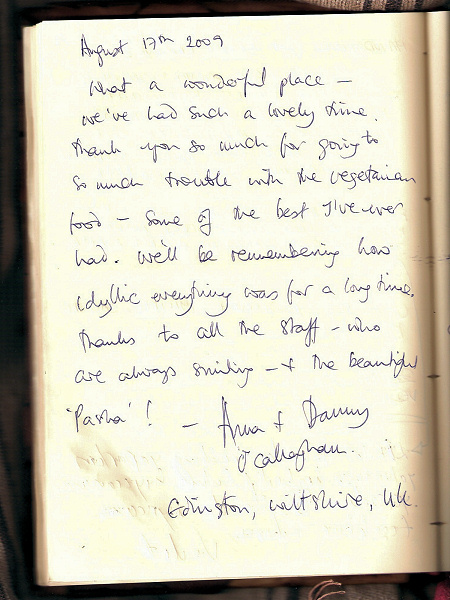 August 17th 2009
What a wonderful place –
we've had such a lovely time.
Thank you so much for going to
so much trouble with the vegetarian
food – some of the best I've ever
had. We'll be remembering how
idyllic everything was for a long time.
Thanks to all the staff – who
are always smiling – & the beautiful
'Pasha'! – Anna & Danny
O'Callaghan.
Edington, Wiltshire, UK.